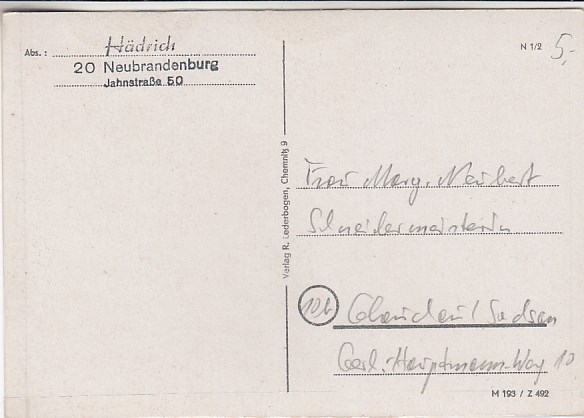 Abs.: Hädrich
20 Neubrandenburg
Jahnstraße 50
N 1/2
5,-
Verlag R. Lederbogen, Chemnitz 9
Frau Marg. Neubert
Schneidermeisterin
10b Glauchau/Sachsen
Carl-Hauptmann-Weg 10
M 193 / Z 492